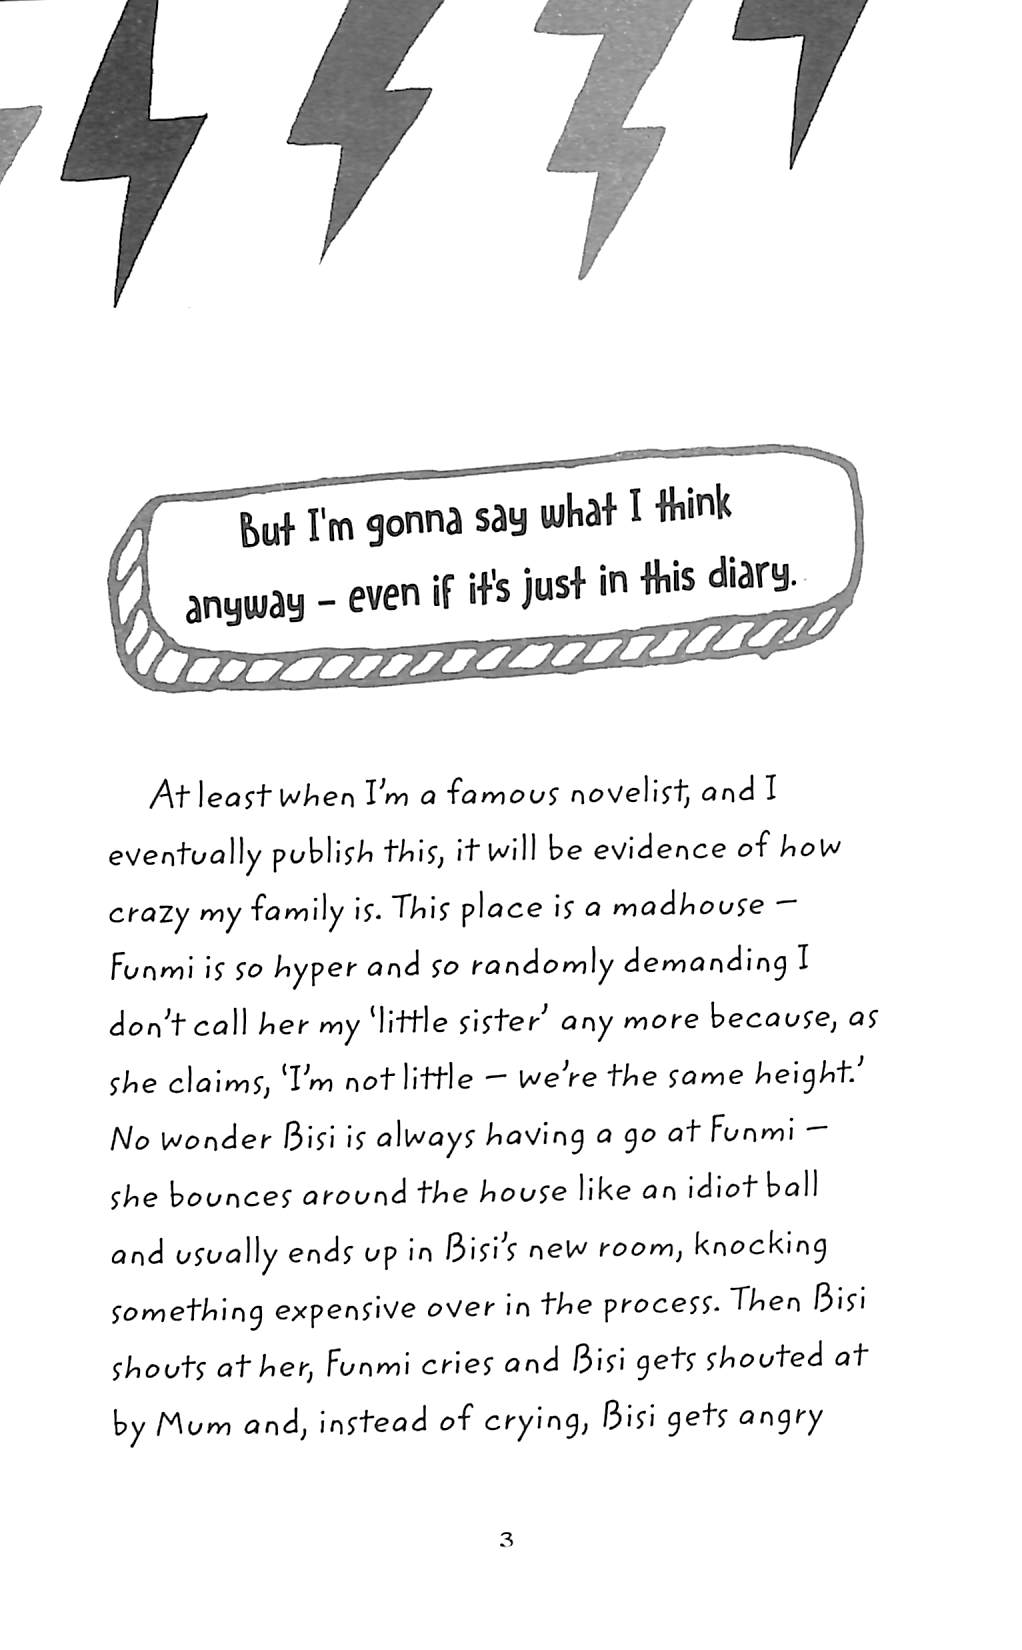 But I'm gonna say what I think
anyway – even if it's just in this diary.
At least when I'm a famous novelist, and I
eventually publish this, it will be evidence of how
crazy my family is. This place is a madhouse –
Funmi is so hyper and so randomly demanding I
don't call her my 'little sister' any more because, as
she claims, 'I'm not little – we're the same height.'
No wonder Bisi is always having a go at Funmi –
she bounces around the house like an idiot ball
and usually ends up in Bisi's new room, knocking
something expensive over in the process. Then Bisi
shouts at her, Funmi cries and Bisi gets shouted at
by Mum and, instead of crying, Bisi gets angry
3